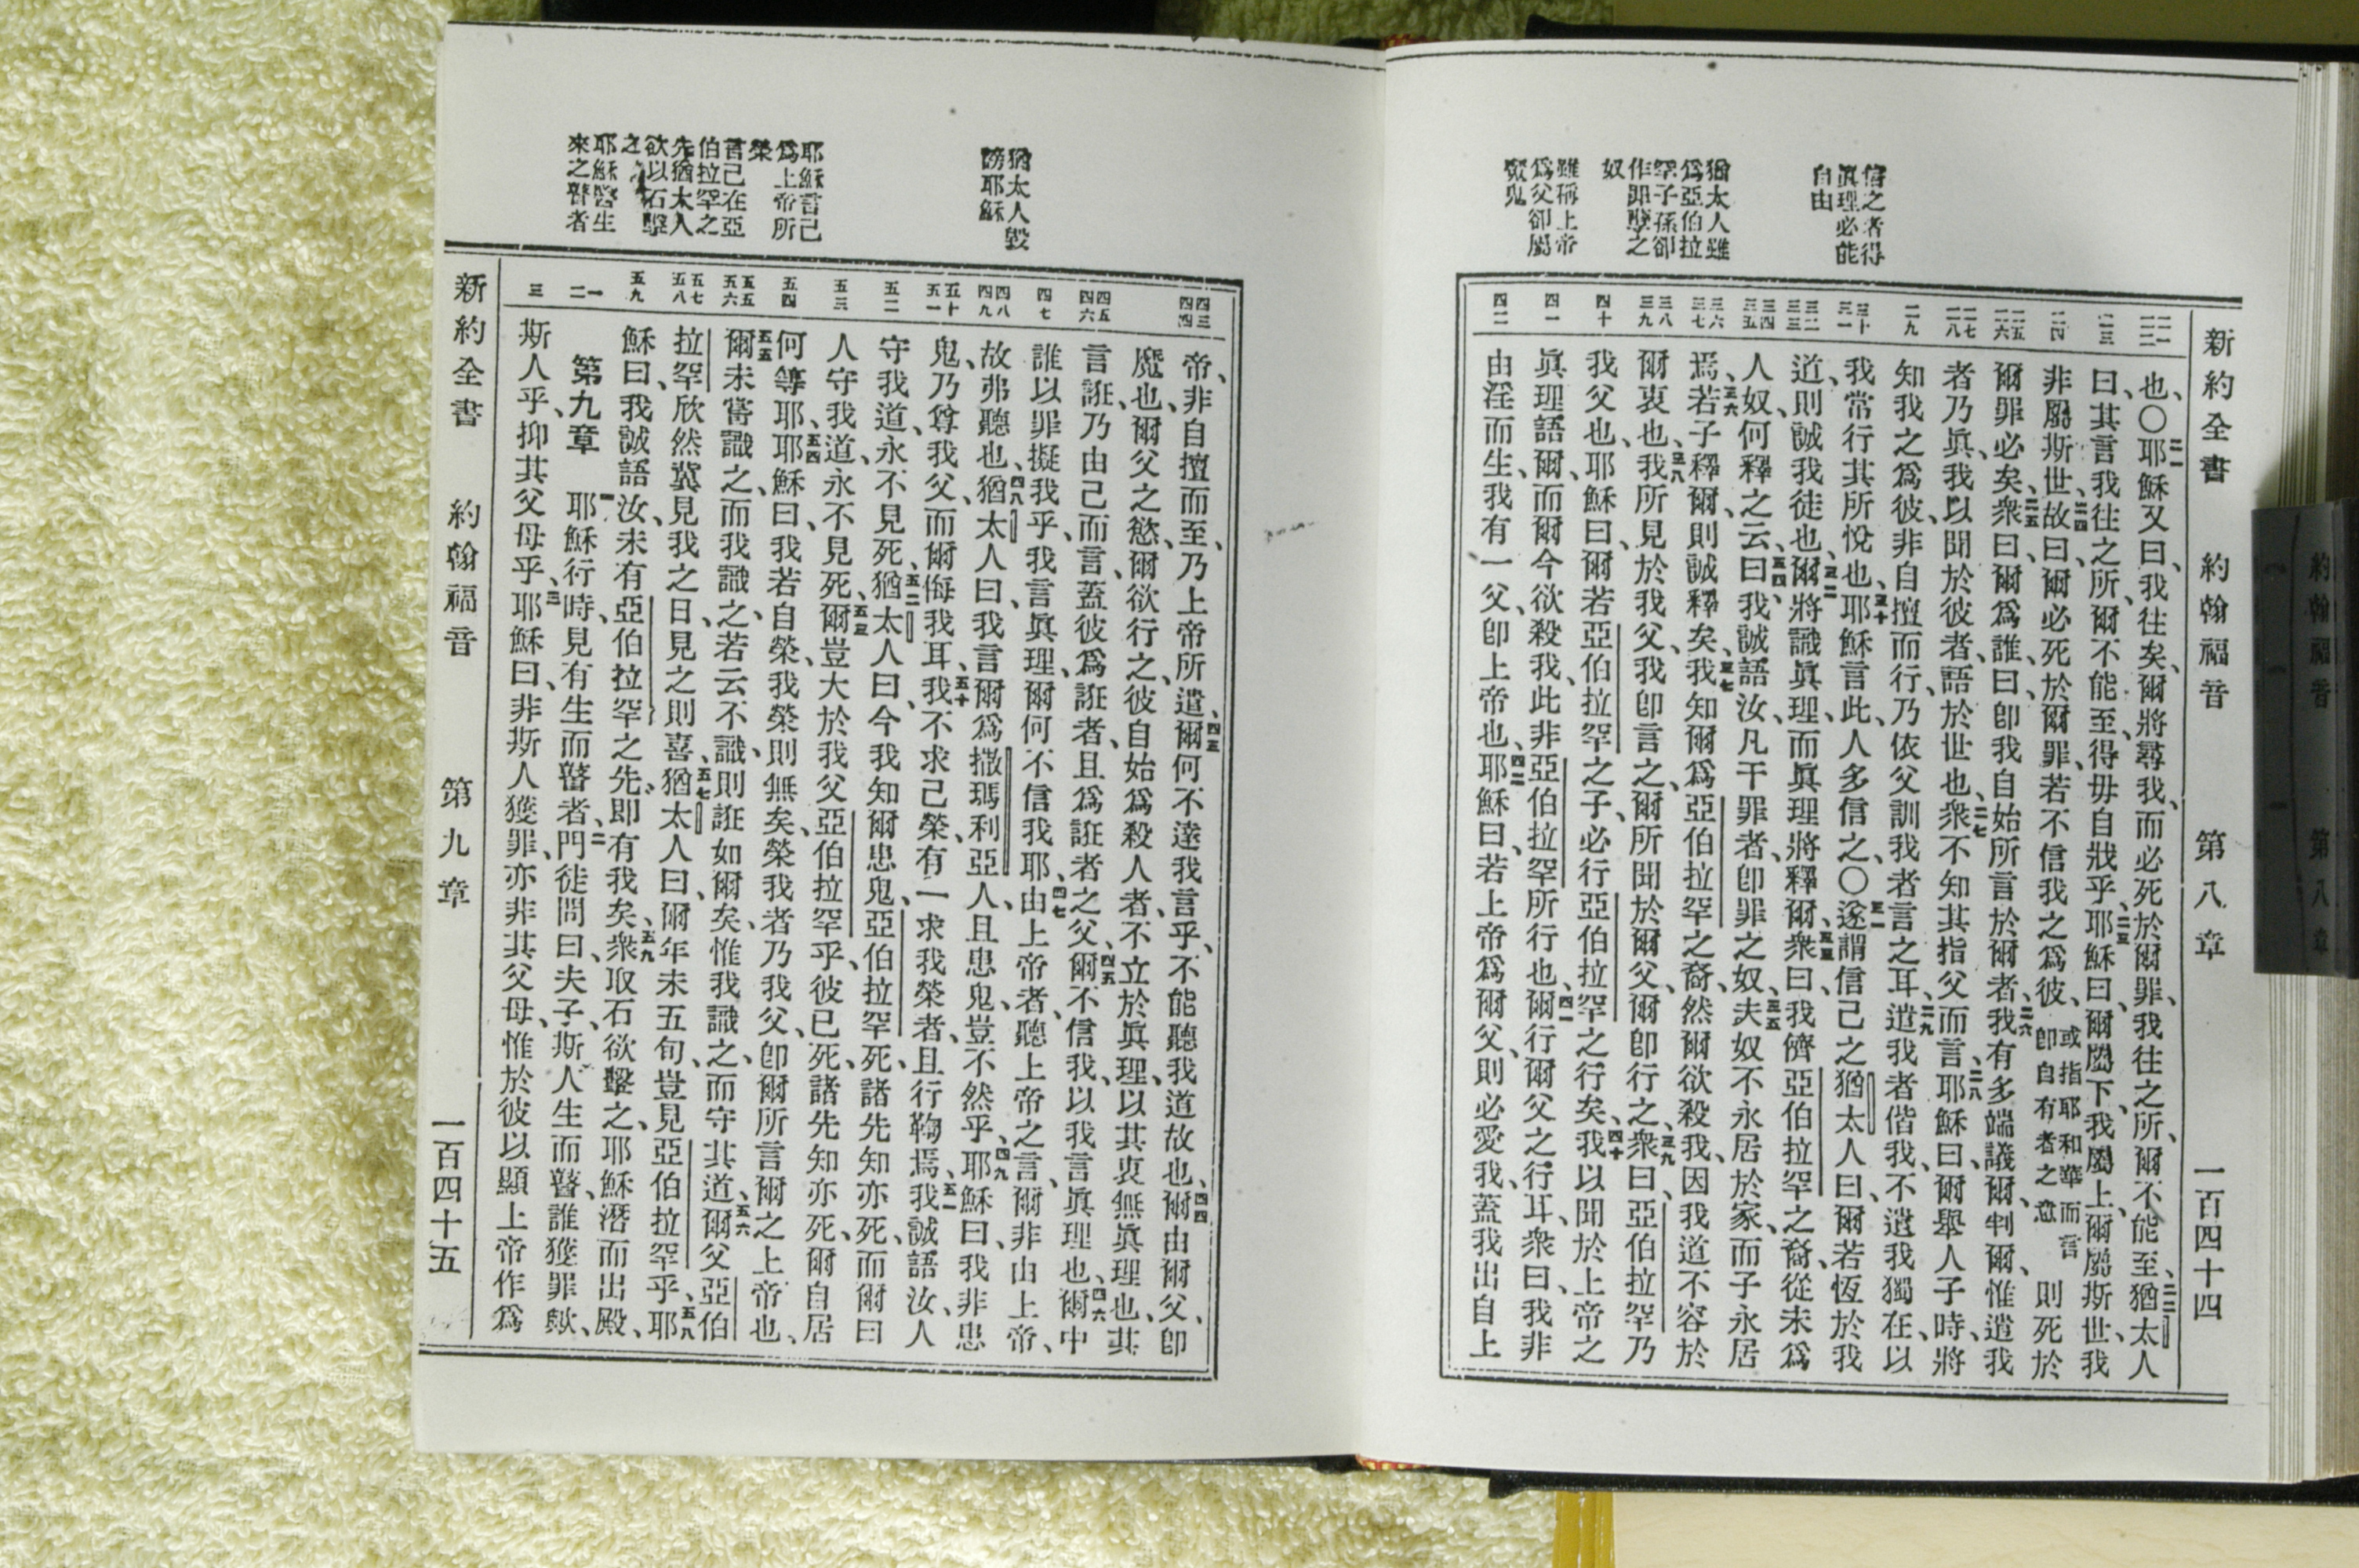 新約全書 約翰福音 第八章 一百四十四
信之者得
眞理必能
自由
猶太人雖
爲亞伯拉
罕子孫卻
作卽墮之
奴
雖稱上帝
爲父卻屬
魔鬼
二一
二二
二三
二四
二五
二六
二七
二八
二九
三十
三一
三二
三三
三四
三五
三六
三七
三八
三九
四十
四一
四二
也、〇二一耶穌又曰、我往矣、爾將尋我、而必死於爾罪、我往之所、爾不能至、二二猶太人
曰、其言我往之所、爾不能至、得毋自戕乎、二三耶穌曰、爾屬下、我屬上、爾屬斯世、我
非屬斯世、二四故曰、爾必死於爾罪、若不信我之爲彼、或指耶和華而言卽自有者之意則死於
爾罪必矣、二五衆曰、爾爲誰、曰、卽我自始所言於爾者、二六我有多端議爾、判爾、惟遣我
者乃眞、我以聞於彼者、語於世也、二七衆不知其指父而言、二八耶穌曰、爾舉人子時、將
知我之爲彼、非自擅而行、乃依父訓我者言之耳、二九遣我者偕我、不遺我獨在、以
我常行其所悅也、三十耶穌言此、人多信之、〇三一遂謂信己之猶太人曰、爾若恆於我
道、則誠我徒也、三二爾將識眞理、而眞理將釋爾、三三衆曰、我儕亞伯拉罕之裔、從未爲
人奴、何釋之云、三四曰、我誠語汝、凡干罪者、卽罪之奴、三五夫奴不永居於家、而子永居
焉、三六若子釋爾、則誠釋矣、三七我知爾爲亞伯拉罕之裔、然爾欲殺我、因我道不容於
爾衷也、三八我所見於我父、我卽言之、爾所聞於爾父、爾卽行之、三九衆曰、亞伯拉罕乃
我父也、耶穌曰、爾若亞伯拉罕之子、必行亞伯拉罕之行矣、四十我以聞於上帝之
眞理語爾、而爾今欲殺我、此非亞伯拉罕所行也、四一爾行爾父之行耳、衆曰、我非
由淫而生、我有一父、卽上帝也、四二耶穌曰、若上帝爲爾父、則必愛我、蓋我出自上
猶太人毀
謗耶穌
耶穌言己
爲上帝所
榮
言己在亞
伯拉罕之
先猶太人
欲以石擊
之
耶穌醫生
來之瞽者
四三
四四
四五
四六
四七
四八
四九
五十
五一
五二
五三
五四
五五
五六
五七
五八
五九
一
二
三
帝、非自擅而至、乃上帝所遣、四三爾何不達我言乎、不能聽我道故也、四四爾由爾父、卽
魔也、爾父之慾、爾欲行之、彼自始爲殺人者、不立於眞理、以其衷無眞理也、其
言誑、乃由己而言、蓋彼爲誑者、且爲誑者之父、四五爾不信我、以我言眞理也、四六爾中
誰以罪擬我乎、我言眞理、爾何不信我耶、四七由上帝者、聽上帝之言、爾非由上帝、
故弗聽也、四八猶太人曰、我言爾爲撒瑪利亞人、且患鬼、豈不然乎、四九耶穌曰、我非患
鬼、乃尊我父、而爾侮我耳、五十我不求己榮、有一求我榮者、且行鞫焉、五一我誠語汝、人
守我道、永不見死、五二猶太人曰、今我知爾患鬼、亞伯拉罕死、諸先知亦死、而爾曰
人守我道、永不見死、五三爾豈大於我父亞伯拉罕乎、彼已死、諸先知亦死、爾自居
何等耶、五四耶穌曰、我若自榮、我榮則無矣、榮我者乃我父、卽爾所言爾之上帝也、
五五爾未嘗識之、而我識之、若云不識、則誑如爾矣、惟我識之、而守其道、五六爾父亞伯
拉罕欣然冀見我之日、見之則喜、五七猶太人曰、爾年未五旬、豈見亞伯拉罕乎、五八耶
穌曰、我誠語汝、未有亞伯拉罕之先、卽有我矣、五九衆取石欲擊之、耶穌潛而出殿、
第九章 一耶穌行時、見有生而瞽者、二門徒問曰、夫子、斯人生而瞽、誰獲罪歟、
斯人乎、抑其父母乎、三耶穌曰、非斯人獲罪、亦非其父母、惟於彼以顯上帝作爲
新約全書 約翰福音 第九章 一百四十五
約翰福音 第八章